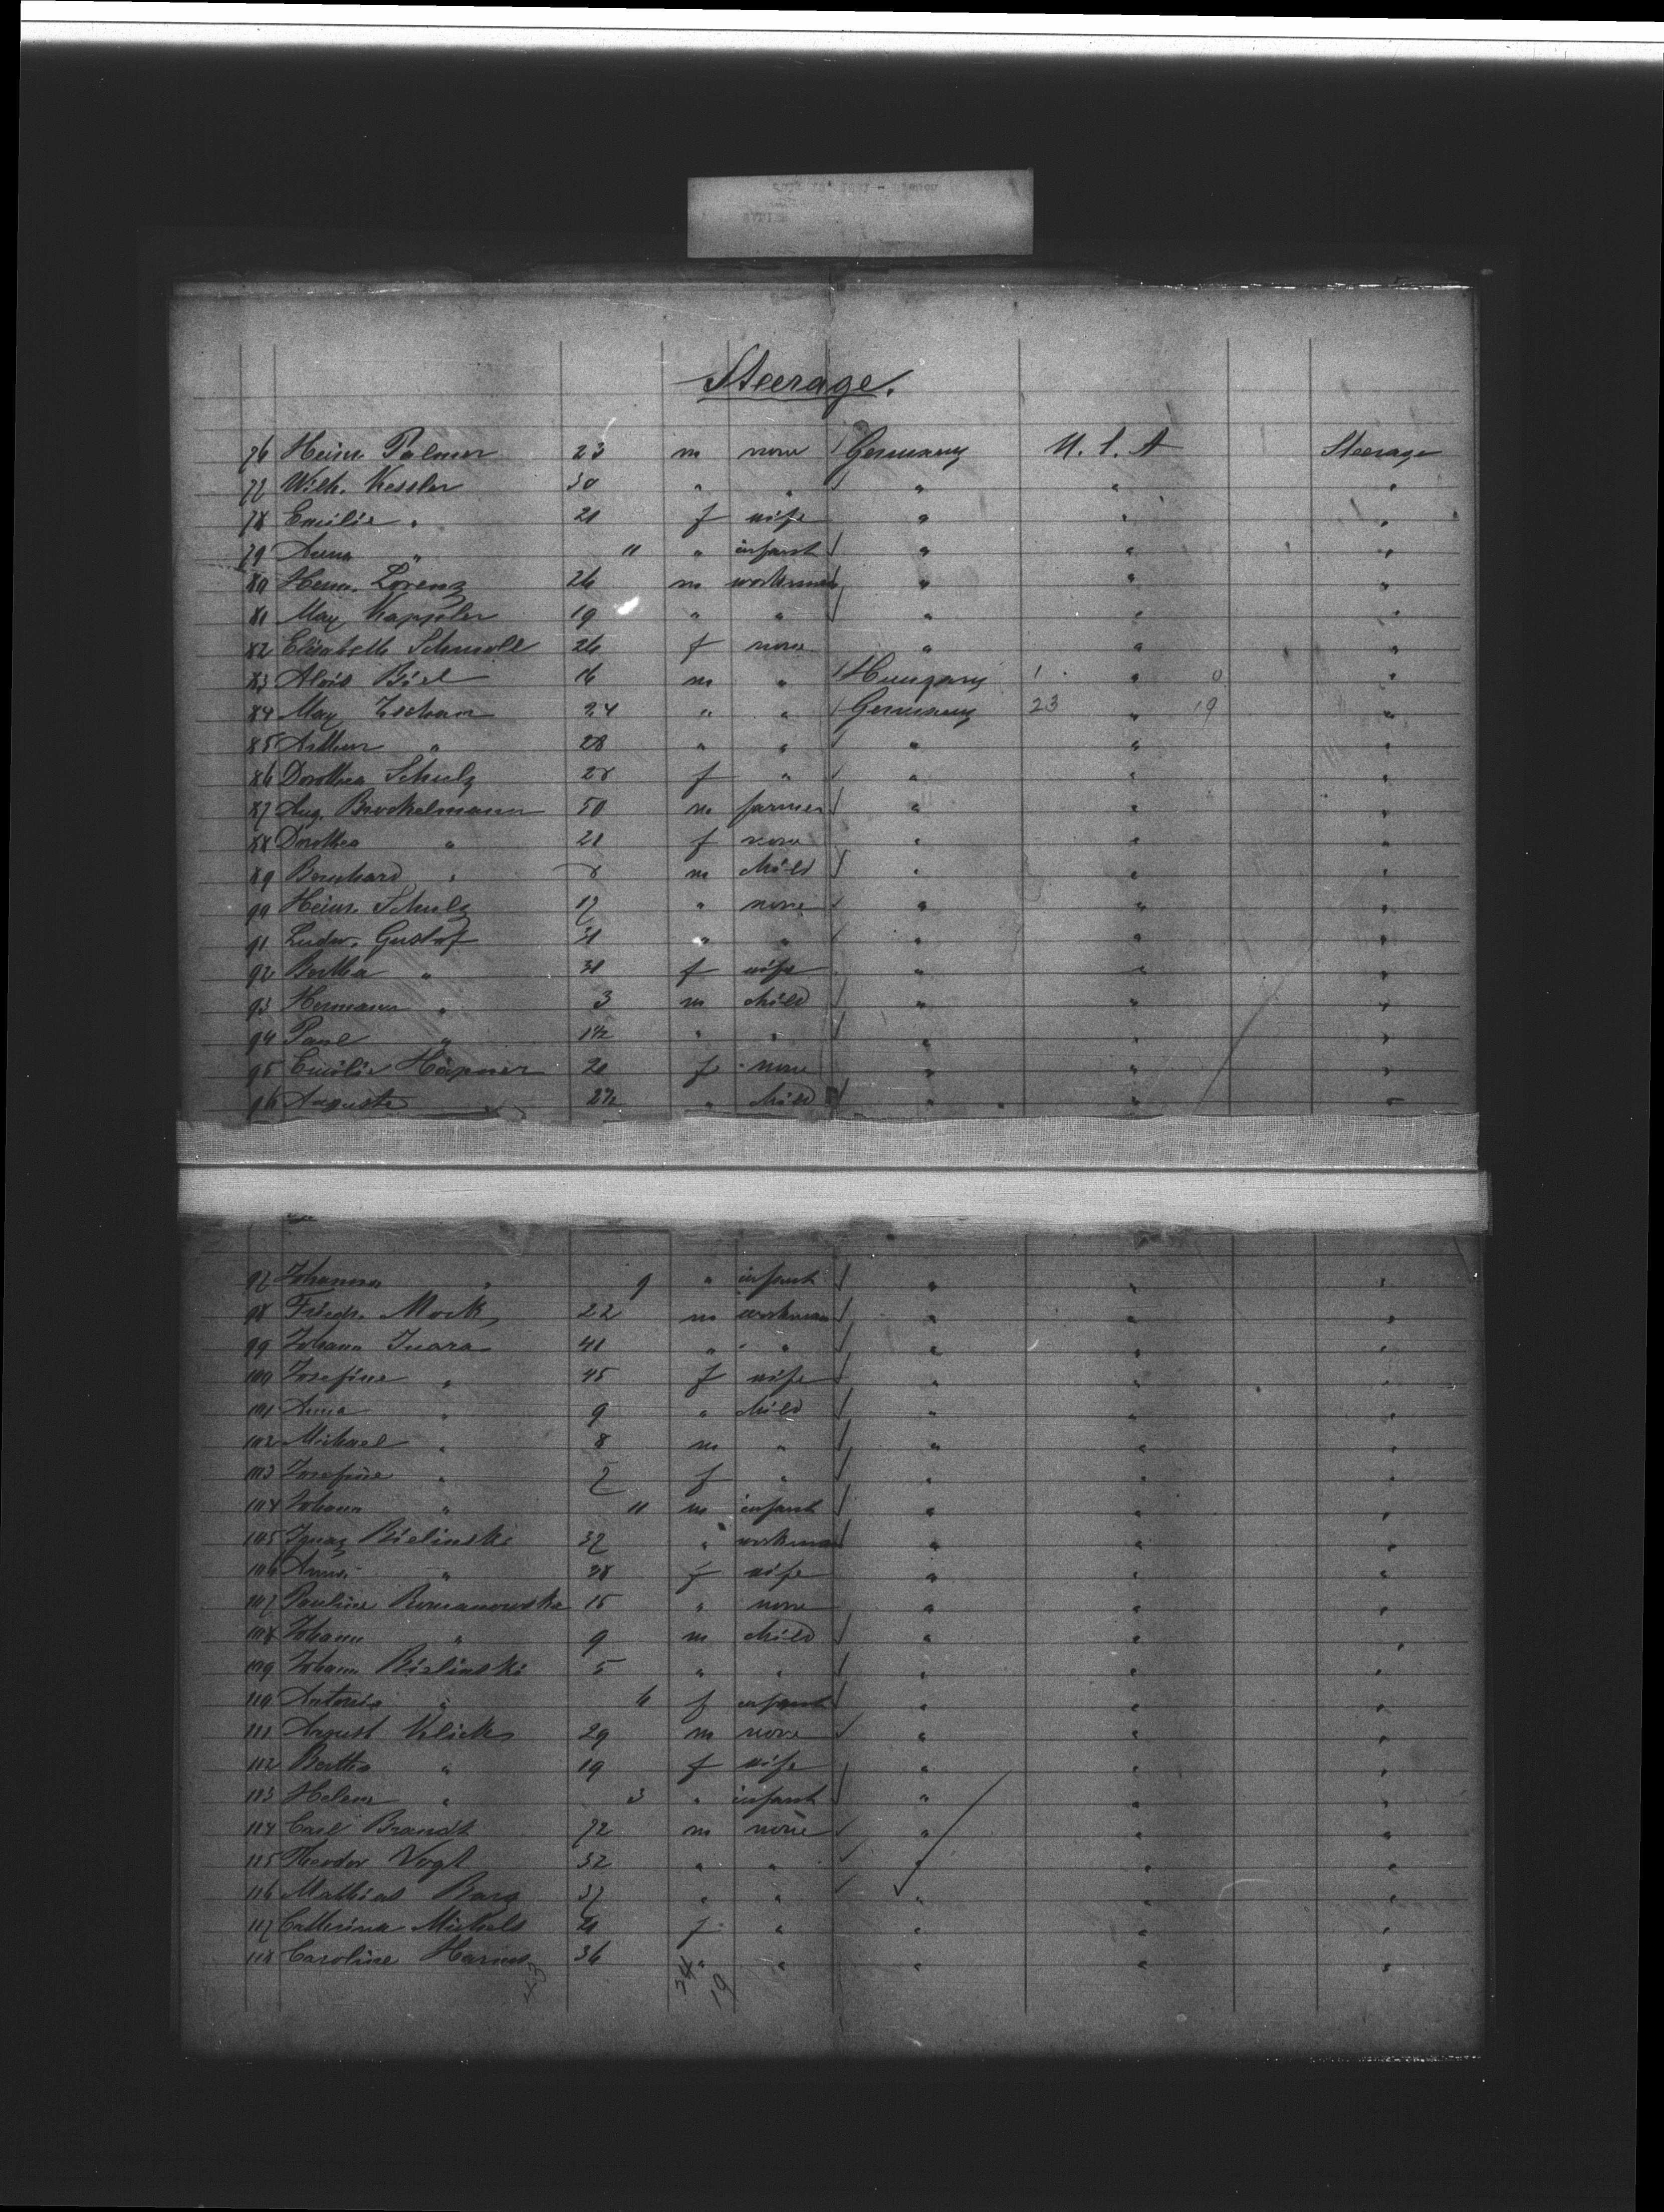 Steerage.
76 Heinr. Palmer 23 m none Germany U. S. A Steerage
77 Wilh. Kessler 30 " " " " "
78 Emilie " 21 f wife " " "
79 Anna " 11 " infant " " "
80 Herm. Lorenz 26 m workman " " "
81 Max Kappeler 19 " " " " "
82 Elisabeth Schmoll 26 f none " " "
83 Alois Biel 16 m " Hungary 1 " 0 "
84 Max Zschau 24 " " Germany 23 " 19 "
85 Arthur " 28 " " " " "
86 Dorothea Schulz 28 f " " " "
87 Aug. Brockelmann 50 m farmer " " "
88 Dorothea " 21 f none " " "
89 Bernhard " 8 m child " " "
90 Heinr. Schulz 17 " none " " "
91 Ludw. Gustof 31 " " " " "
92 Bertha " 31 f wife " " "
93 Hermann " 3 m child " " "
94 Paul " 1½ " " " " "
95 Emilie Höpner 20 f none " " "
96 Auguste 2½ " child " " "
97 Johanna " 9 " infant " " "
98 Friedr. Mock 22 m workman " " "
99 Johann Juara 41 " " " " "
100 Josefine " 45 f wife " " "
101 Anna " 9 " child " " "
102 Michael " 8 m " " " "
103 Josefine " 7 f " " " "
104 Johann " 11 m infant " " "
105 Ignaz Bielinski 37 " workman " " "
106 Anna " 38 f wife " " "
107 Pauline Romanowska 15 " none " " "
108 Johann " 9 m child " " "
109 Johann Bielinski 5 " " " " "
110 Antonia " 6 f infant " " "
111 August Klick 29 m none " " "
112 Bertha " 19 f wife " " "
113 Helene " 3 " infant " " "
114 Carl Brandt 72 m none " " "
115 Theodor Vogt 32 " " " " "
116 Mathias Barg 37 " " " " "
117 Catharina Michels 21 f " " " "
118 Caroline Harms 36 " " " " "
43 24 19